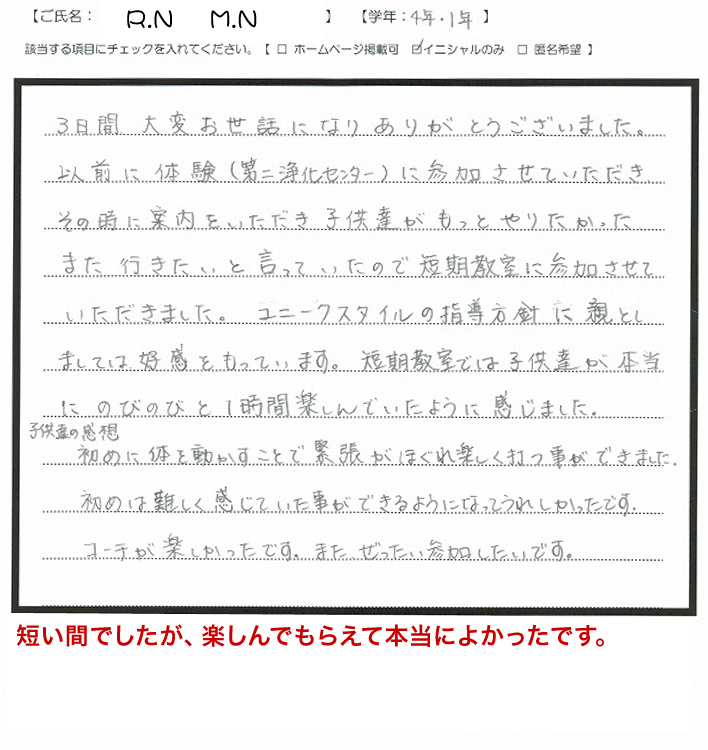 【ご氏名： R.N M.N 】 【学年：4年・1年 】
該当する項目にチェックを入れてください。【 □ ホームページ掲載可 ☑イニシャルのみ □ 匿名希望 】
3日間 大変お世話になりありがとうございました。
以前に体験(第二浄化センター)に参加させていただき
その時に案内をいただき子供達がもっとやりたかった
また行きたいと言っていたので短期教室に参加させて
いただきました。ユニークスタイルの指導方針に親とし
ましては好感をもっています。短期教室では子供達が本当
にのびのびと1時間楽しんでいたように感じました。
子供達の感想
初めに体を動かすことで緊張がほぐれ楽しく打つ事ができました.
初めは難しく感じていた事ができるようになってうれしかったです.
コーチが楽しかったです。またぜったい参加したいです。
短い間でしたが、楽しんでもらえて本当によかったです。